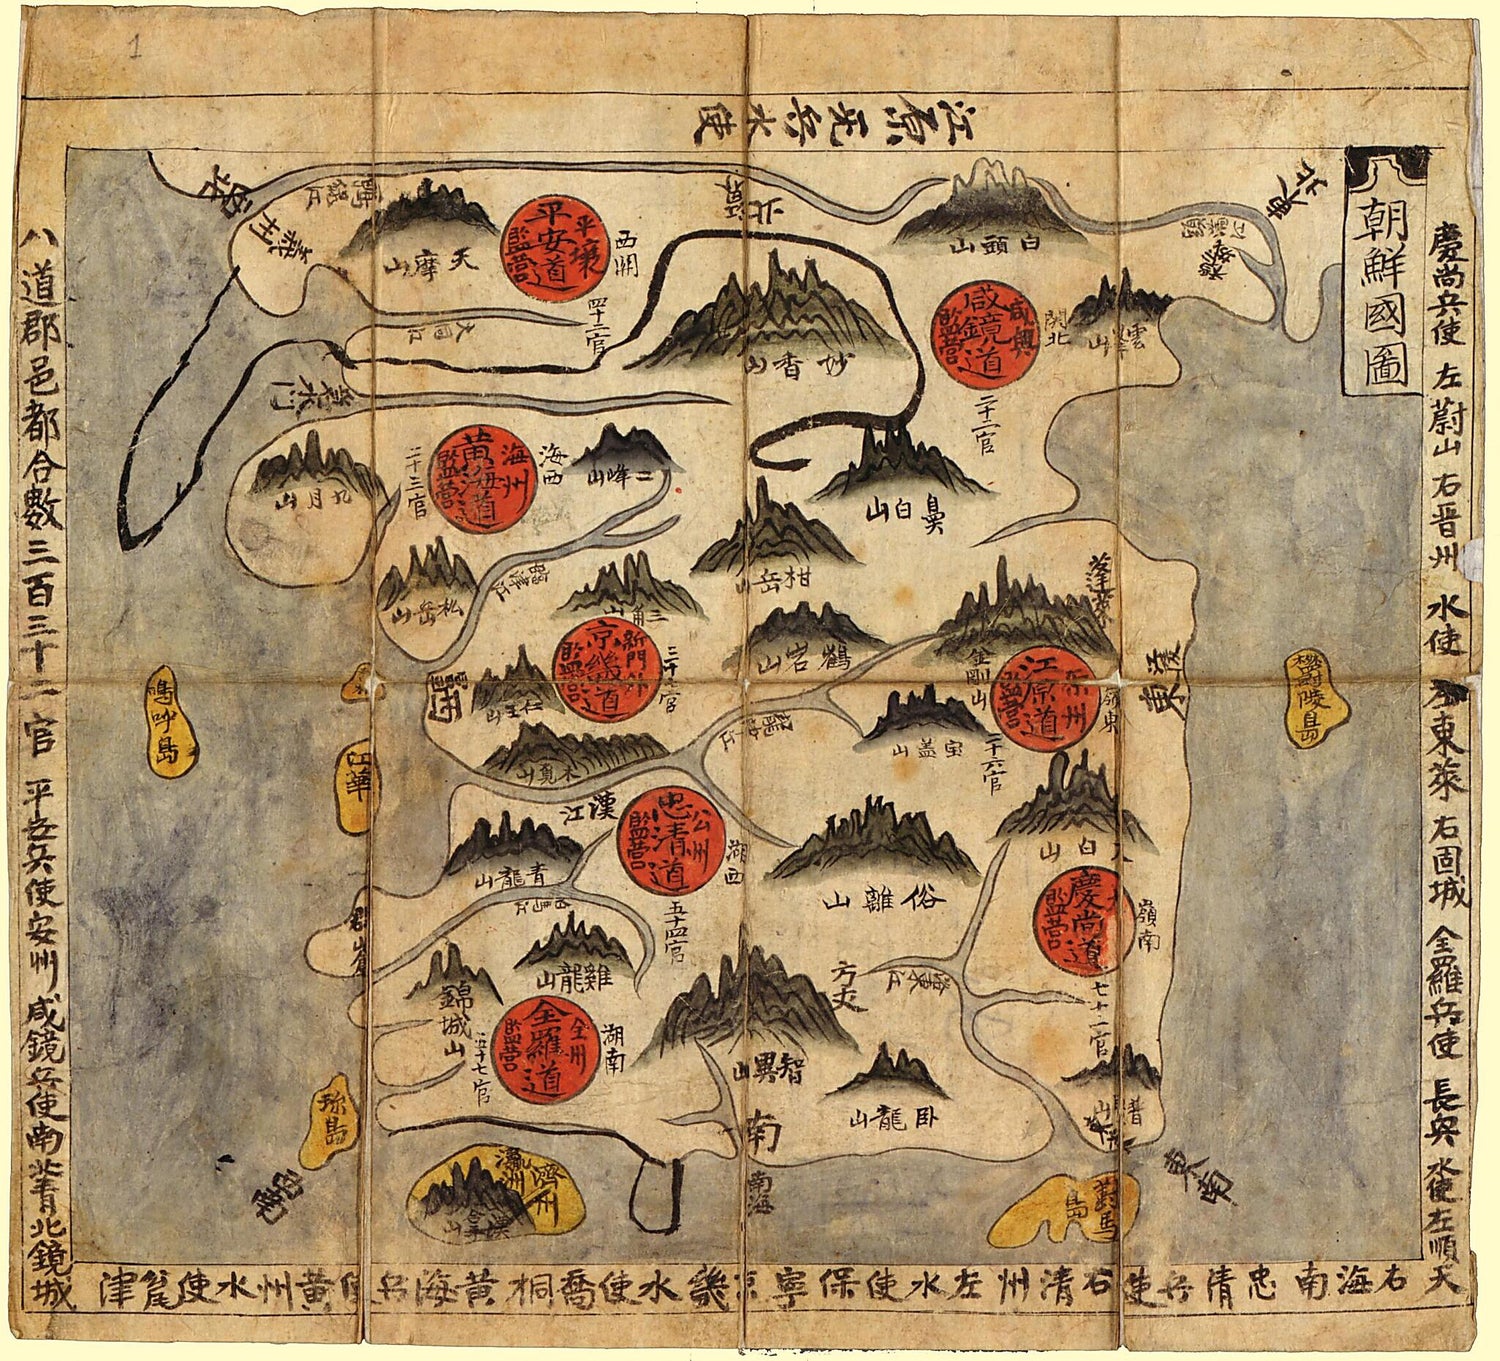 1
朝鮮國圖
江原 兵無水使
慶尚兵使 左蔚山 右晋州 水使 左東萊 右固城 全羅兵使 長興 水使左順天
右海南 忠清兵使右清州左水使保寧京畿水使喬桐黄海兵使黄州水使瓮津
八道郡邑都合數三百三十二官 平安兵使安州咸鏡兵使南北青鏡城
鴨綠江
義州
天摩山
平安道
平壤
監營
西關
四十二官
大同江
北
白頭山
妙香山
咸鏡道
咸興
監營
關北
二十二官
雲峰山
鼻白山
九月山
黄海道
海州
監營
海西
二十三官
二峰山
松岳山
臨津江
三角山
紺岳山
京畿道
新門外
監營
三十六官
仁王山
木覓山
鶴岩山
蓬萊
金剛山
江原道
原州
監營
嶺東
二十六官
宝盖山
東
漢江
忠清道
公州
監營
湖西
五十四官
青龍山
白馬江
雞龍山
俗離山
太白山
慶尚道
監營
嶺南
七十一官
洛東江
方丈
智異山
錦城山
全羅道
全州
監營
湖南
五十七官
卧龍山
南
南海
西
江華
群山
珍島
瀛洲
濟州
漢拏山
對馬島
東南
西南
鬱陵島